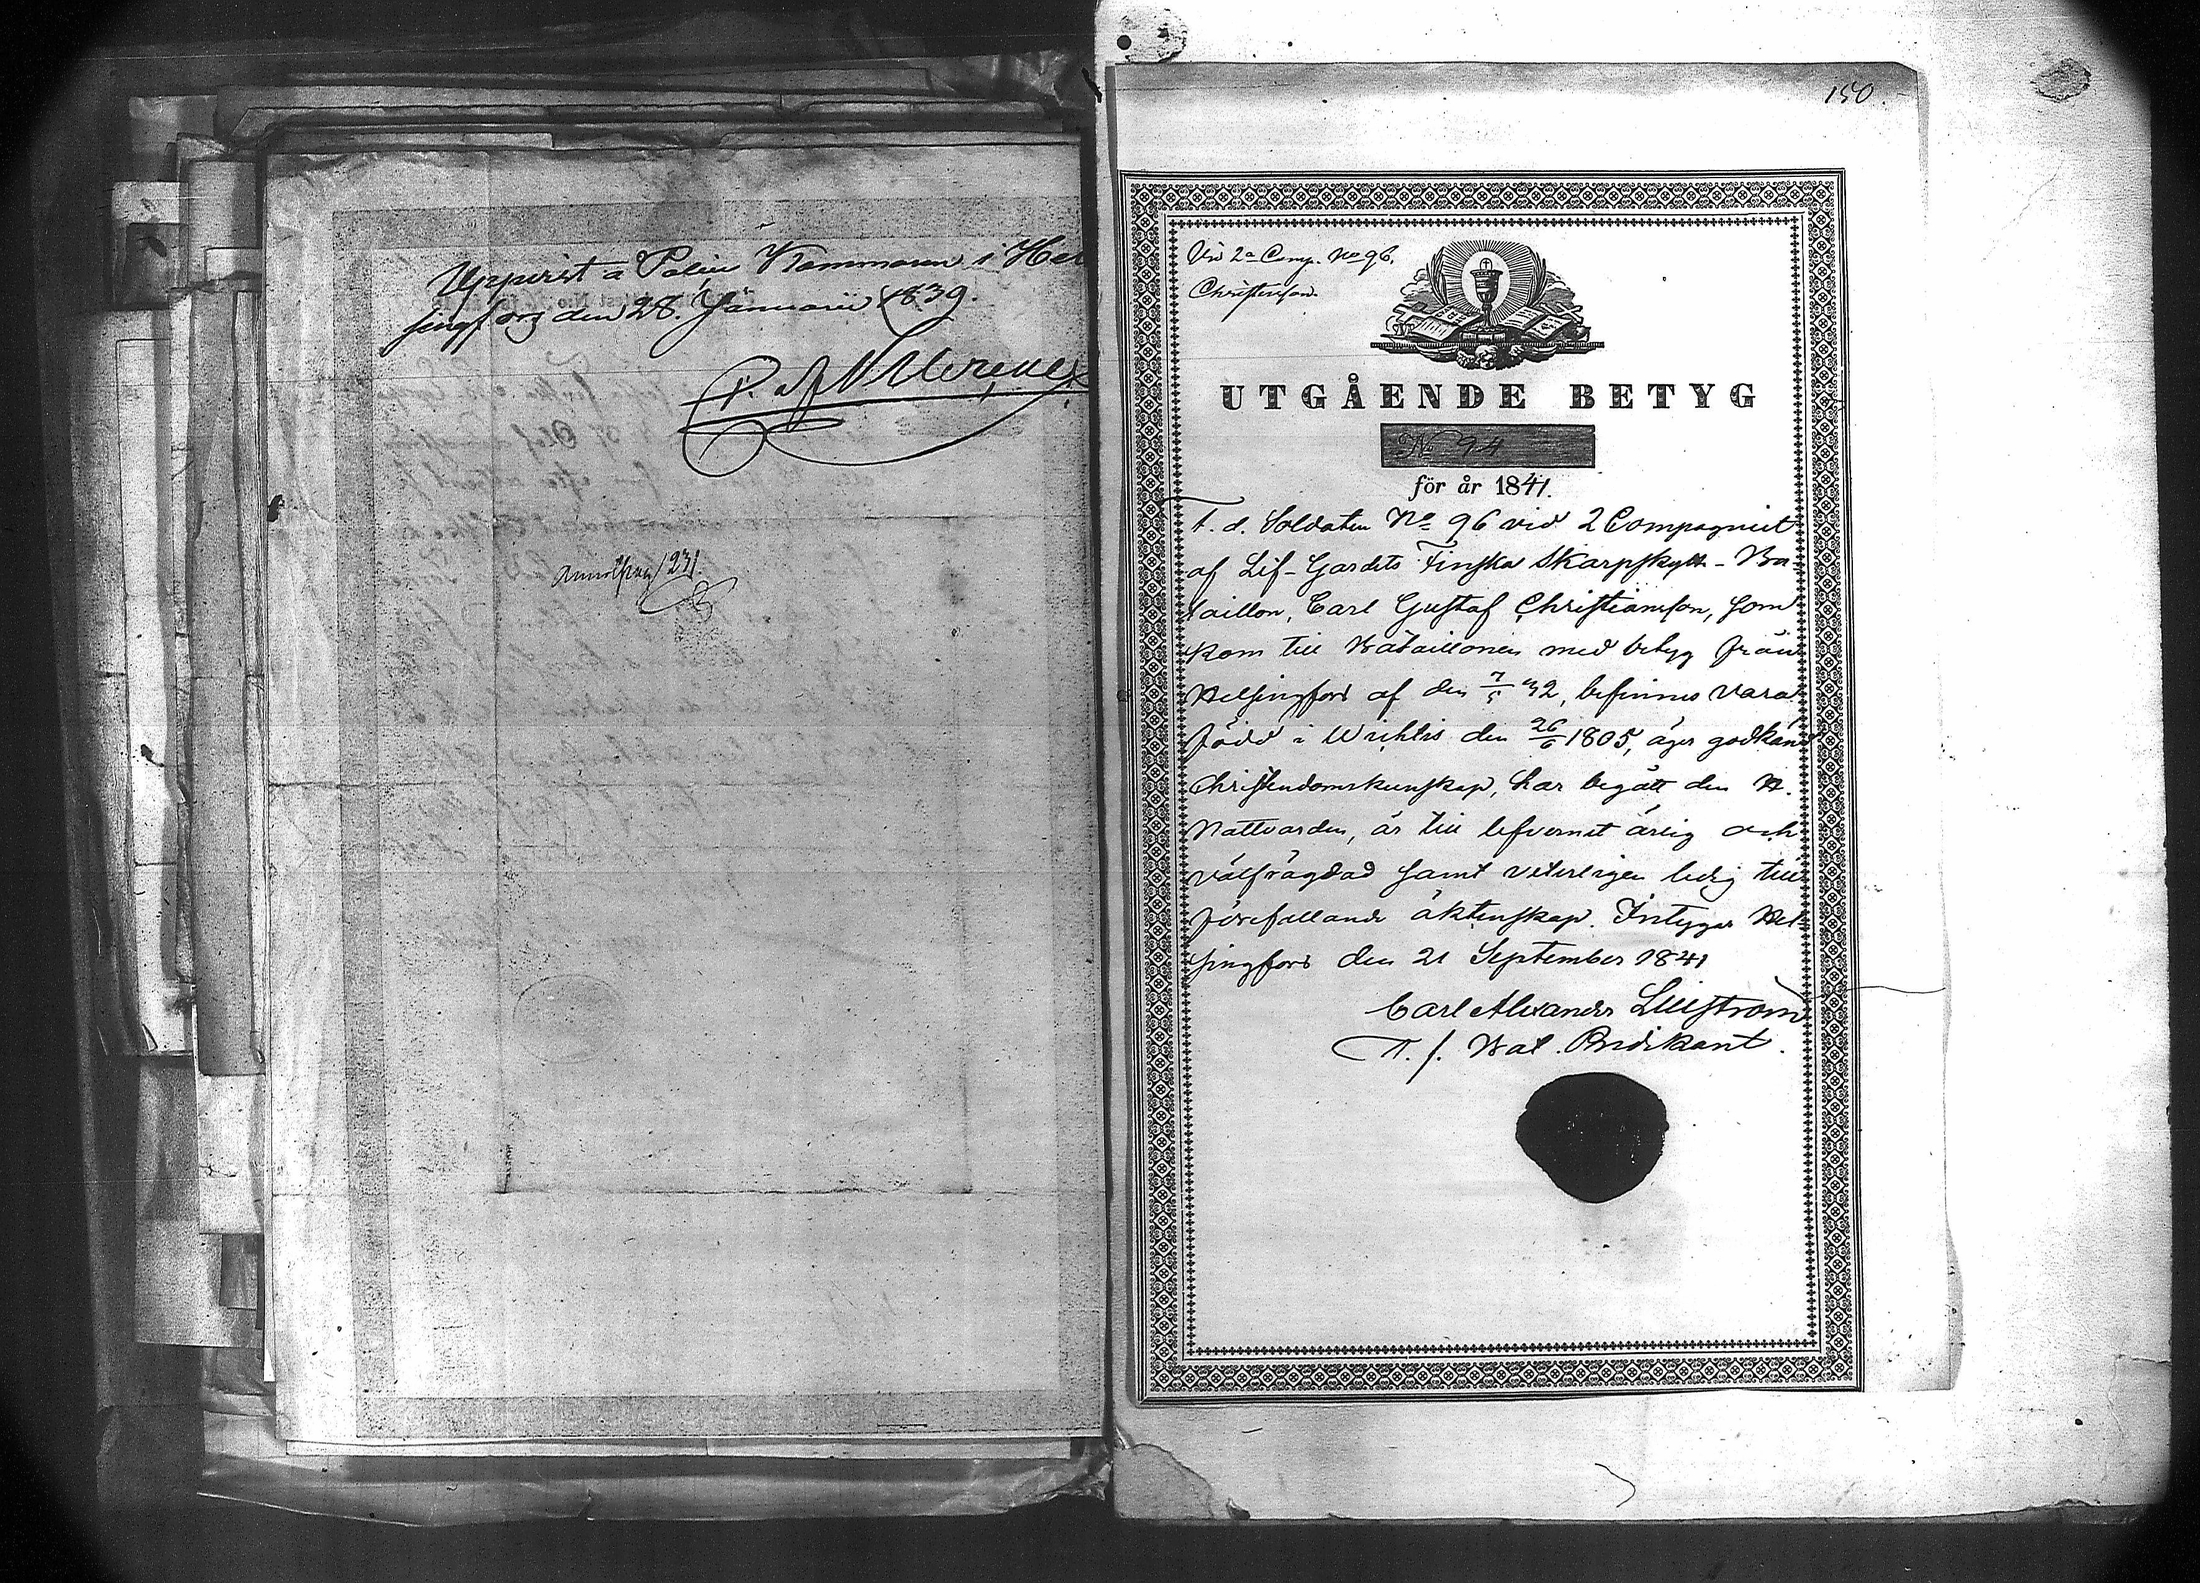 Uppvist å Police Kammaren i Hel
singfors den 28. Januarii 1839.
Anmält pag 231.
150.
Vid 2a Comp. No 96.
Christianson.
UTGÅENDE BETYG
No 94
för år 1841.
F. d. Soldaten No 96 vid 2 Compagniet
af Lif-Gardets Finska Skarpskytt-Ba-
taillon, Carl Gustaf Christianson, som
kom till Bataillonen med betyg från
Helsingfors af den 7/5 32, befinnes vara
född i Wichtis den 26/6 1805, äger godkänd
Christendomskunskap, har begått den H.
Nattvarden, är till lefvernet ärlig och
välfrägdad samt veterligen ledig till
förefallande äktenskap. Intygar Hel-
singfors den 21 September 1841
Carl Alexander Lillström
T. f. Bat. Predikant.